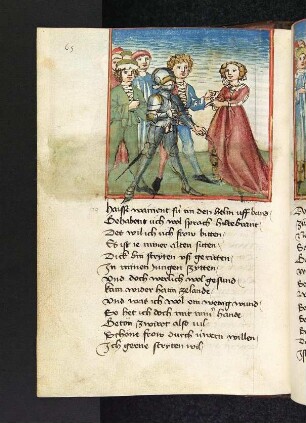 65
Haisse wainent sü an den helm uff band
Gehabent üch wol sprach hiltebrant
Det wil ich üch frow bitten
Es ist ie miner alten sitten
Dick bin stryten uß geritten
In minen jungen zytten
Und doch werlich wol gesund
kam wider heim zelande
Und wart ich wol ein wenig wund
So het ich doch mit miner hande
Beton zwirot also vil
Schöne frow durch üwern willen
Ich gerne stryten wil